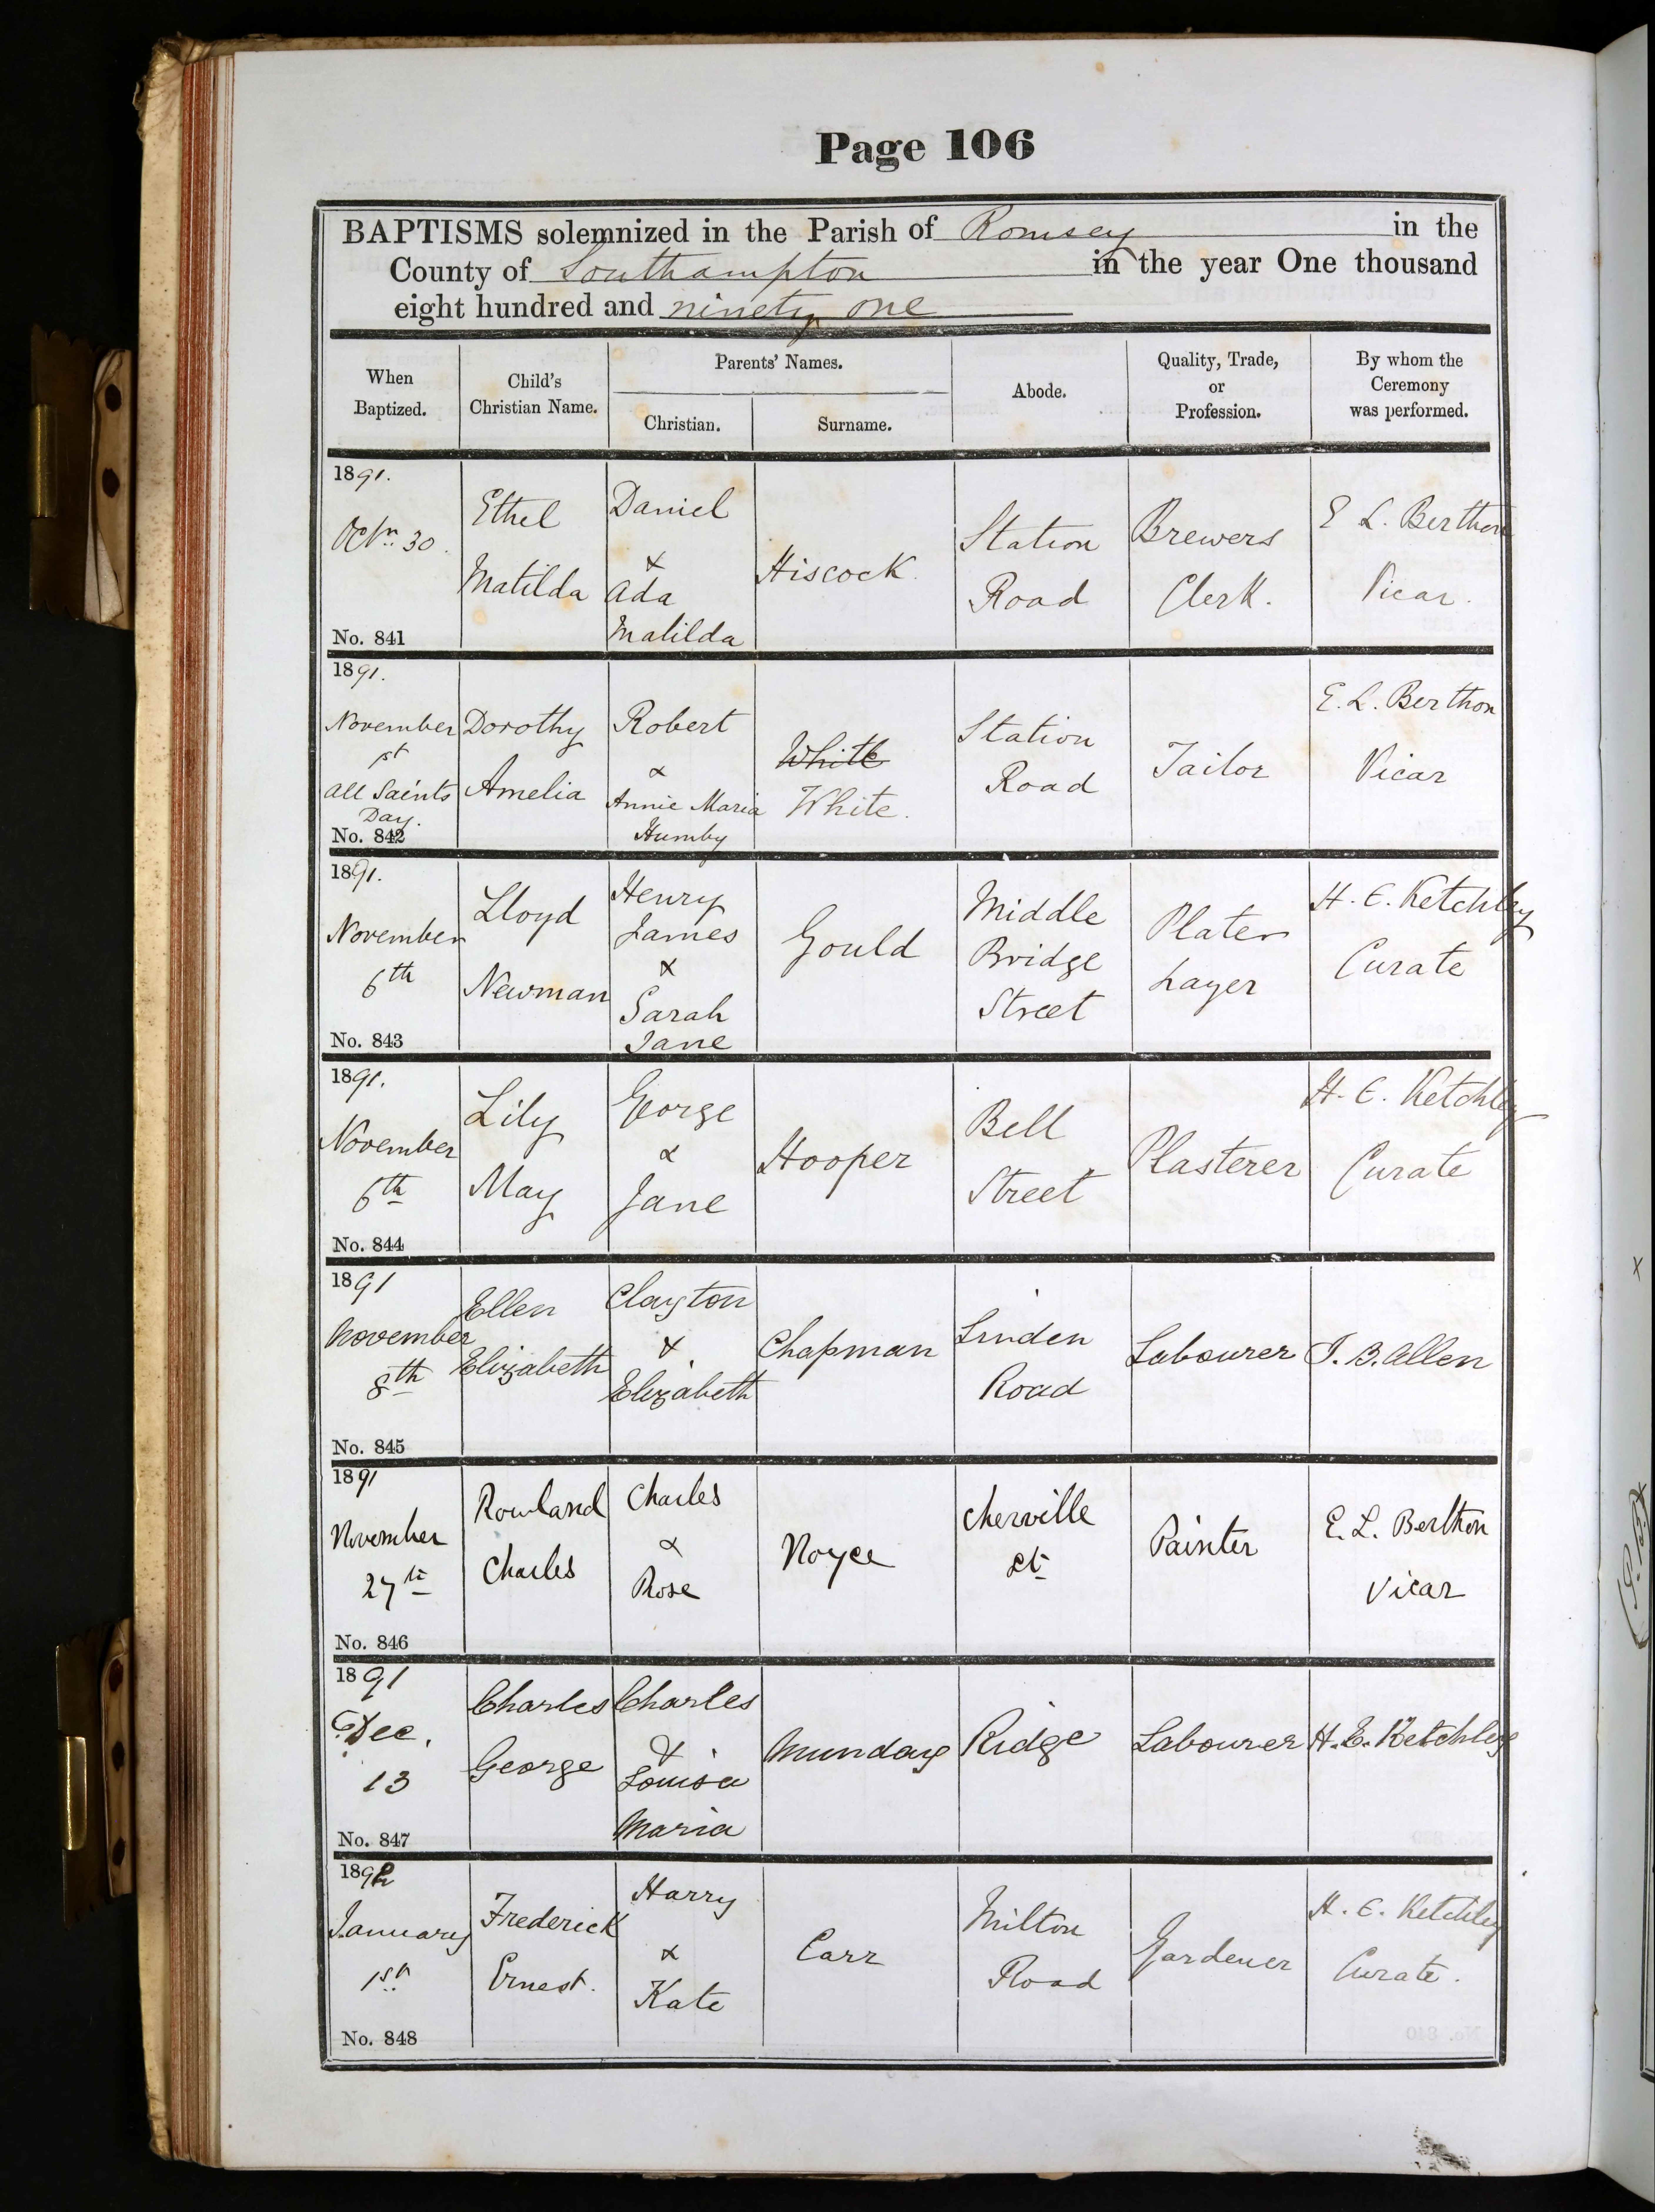 Page 106
BAPTISMS solemnized in the Parish of Romsey in the
County of Southampton in the year One thousand
eight hundred and ninety one
When Baptized.
Child's Christian Name.
Parents' Names.
Christian.
Surname.
Abode.
Quality, Trade, or Profession.
By whom the Ceremony was performed.
1891.
Octr. 30.
No. 841
Ethel
Matilda
Daniel
&
Ada
Matilda
Hiscock.
Station
Road
Brewers
Clerk.
E L. Berthon
Vicar.
1891.
November
1st
All Saints
Day.
No. 842
Dorothy
Amelia
Robert
&
Annie Maria
Humby
White
White.
Station
Road
Tailor
E. L. Berthon
Vicar
1891.
November
6th
No. 843
Lloyd
Newman
Henry
James
&
Sarah
Jane
Gould
Middle
Bridge
Street
Plate
Layer
H. E. Ketchley
Curate
1891.
November
6th
No. 844
Lily
May
George
&
Jane
Hooper
Bell
Street
Plasterer
H. E. Ketchley
Curate
1891
November
8th
No. 845
Ellen
Elizabeth
Clayton
&
Elizabeth
Chapman
Linden
Road
Labourer
J. B. Allen
1891
November
27th
No. 846
Rowland
Charles
Charles
&
Rose
Noyce
Cherville
St.
Painter
E. L. Berthon
Vicar
1891
Dec.
13
No. 847
Charles
George
Charles
&
Louisa
Maria
Munday
Ridge
Labourer
H. E. Ketchley
1892
January
1st
No. 848
Frederick
Ernest.
Harry
&
Kate
Carr
Milton
Road
Gardener
H. E. Ketchley
Curate.